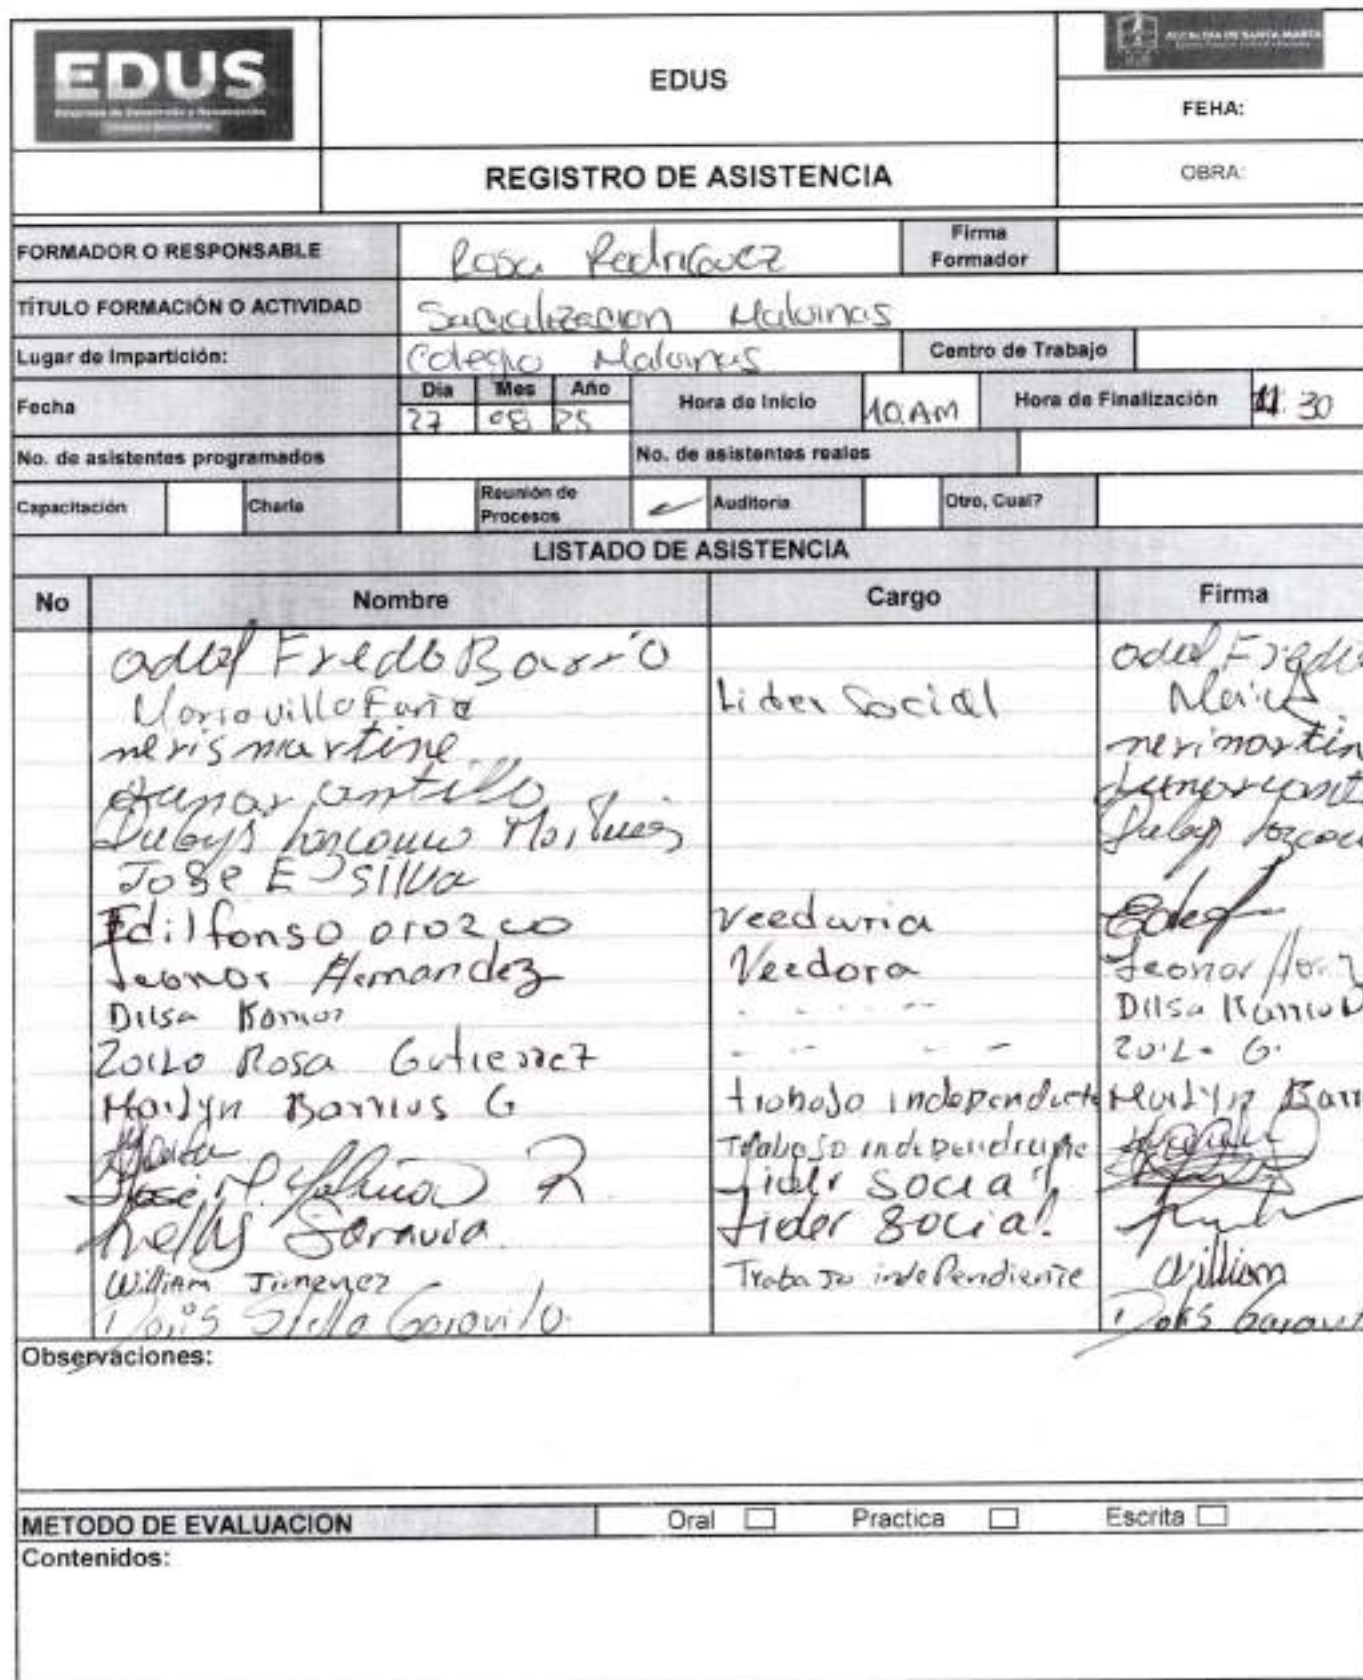 EDUS
EDUS
ALCALDIA DE SANTA MARTA
FEHA:
REGISTRO DE ASISTENCIA
OBRA:
FORMADOR O RESPONSABLE Rosa Rodriguez Firma Formador
TÍTULO FORMACIÓN O ACTIVIDAD Socialización Malvinas
Lugar de Impartición: Colegio Malvinas Centro de Trabajo
Fecha Dia Mes Año Hora de Inicio 10.AM Hora de Finalización 11:30
27 08 25
No. de asistentes programados No. de asistentes reales
Capacitación Charla Reunión de Procesos ✓ Auditoria Otro, Cual?
LISTADO DE ASISTENCIA
No Nombre Cargo Firma
Fredo Barrio
Maria villa Faña Lider Social Maria
neris martine nerimartin
Dubys Jose E Silva
Edilfonso orozco veeduria
Leonor Hernandez Veedora Leonor
Dilsa Dilsa
Zoilo Rosa Gutierrez Zoil. G.
Marlyn Barrios G trabajo independiente Marlyn Barr
Trabajo independiente
Jose Lider Social
Nellys Saravia Lider Social
William Jimenez Trabajo independiente William
Doris Stella Garavito Doris
Observaciones:
METODO DE EVALUACION Oral Practica Escrita
Contenidos: